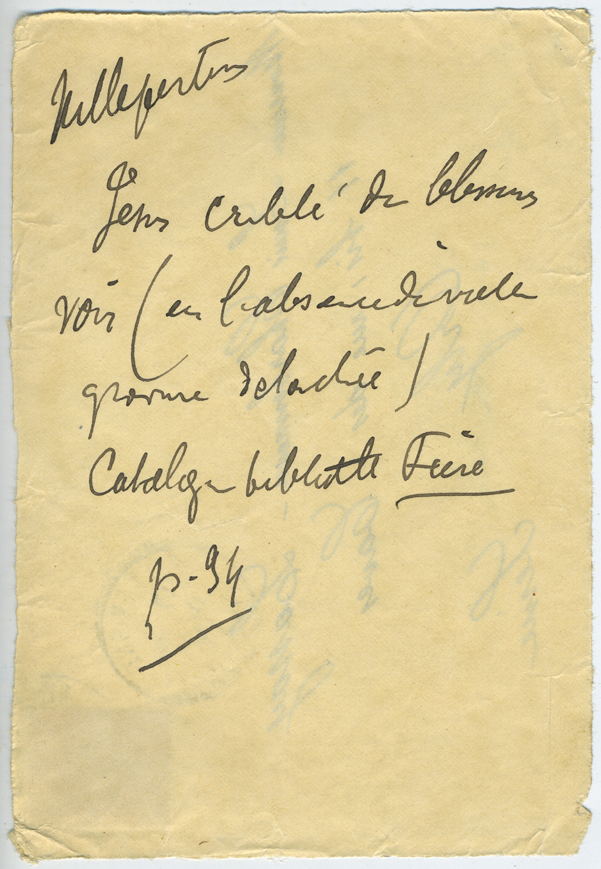 Millepertuis
Jesus criblé de blessures
voir (en l'absence de
gravure detachée)
Catalogue biblioth Fiere
p. 94